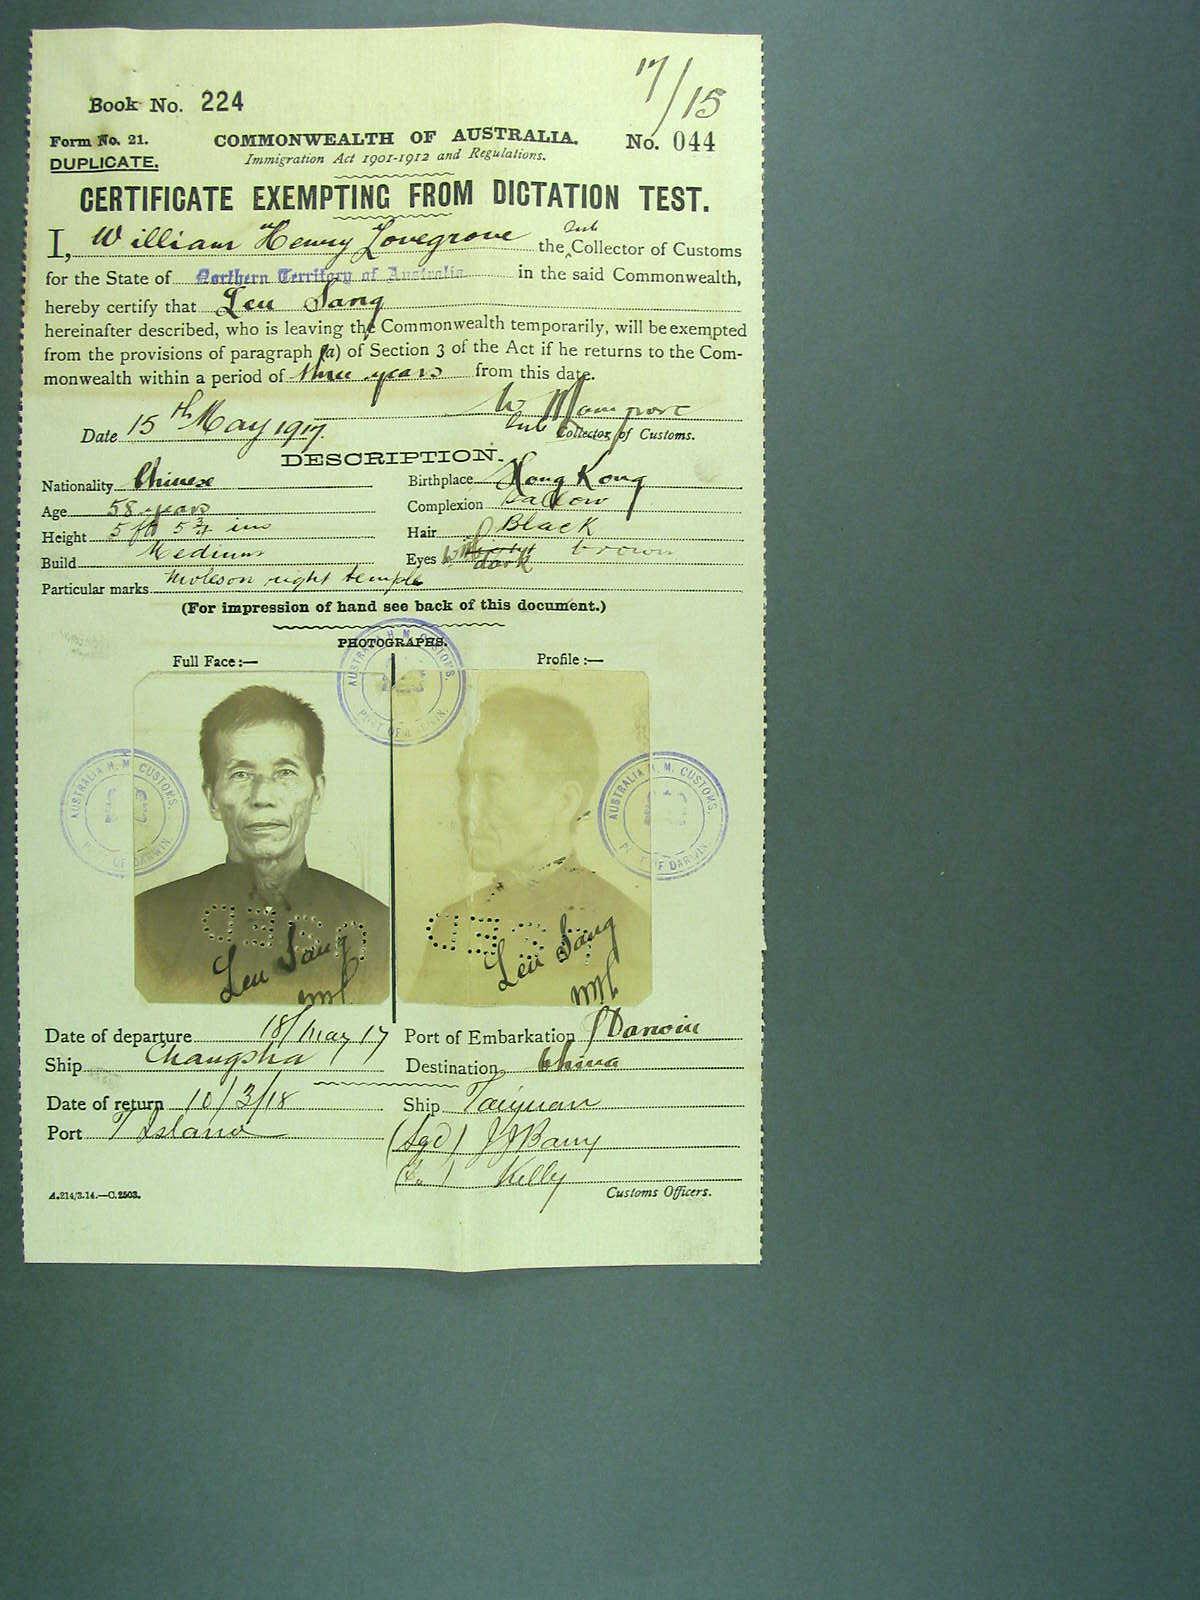 17/15
Book No. 224
Form No. 21. COMMONWEALTH OF AUSTRALIA. No. 044
DUPLICATE. Immigration Act 1901-1912 and Regulations.
CERTIFICATE EXEMPTING FROM DICTATION TEST.
I, William Henry Lovegrove the Sub Collector of Customs
for the State of Northern Territory of Australia in the said Commonwealth,
hereby certify that Leu Sang
hereinafter described, who is leaving the Commonwealth temporarily, will be exempted
from the provisions of paragraph (a) of Section 3 of the Act if he returns to the Com-
monwealth within a period of three years from this date.
W H Lovegrove
Date 15th May 1917. Sub Collector of Customs.
DESCRIPTION.
Nationality Chinese Birthplace Hong Kong
Age 58 years Complexion Sallow
Height 5 ft 5 3/4 ins Hair Black
Build Medium Eyes dark brown
Particular marks moles on right temple
(For impression of hand see back of this document.)
PHOTOGRAPHS.
Full Face:— Profile:—
AUSTRALIA H. M. CUSTOMS. PORT OF DARWIN
AUSTRALIA H. M. CUSTOMS. PORT OF DARWIN
AUSTRALIA H. M. CUSTOMS. PORT OF DARWIN
Leu Sang Leu Sang
WHL WHL
Date of departure 18/May 17 Port of Embarkation P Darwin
Ship Changsha Destination China
Date of return 10/3/18 Ship Taiyuan
Port T Island (Sgd) J J Barry
Kelly
A.214/3.14.—C.2503. Customs Officers.